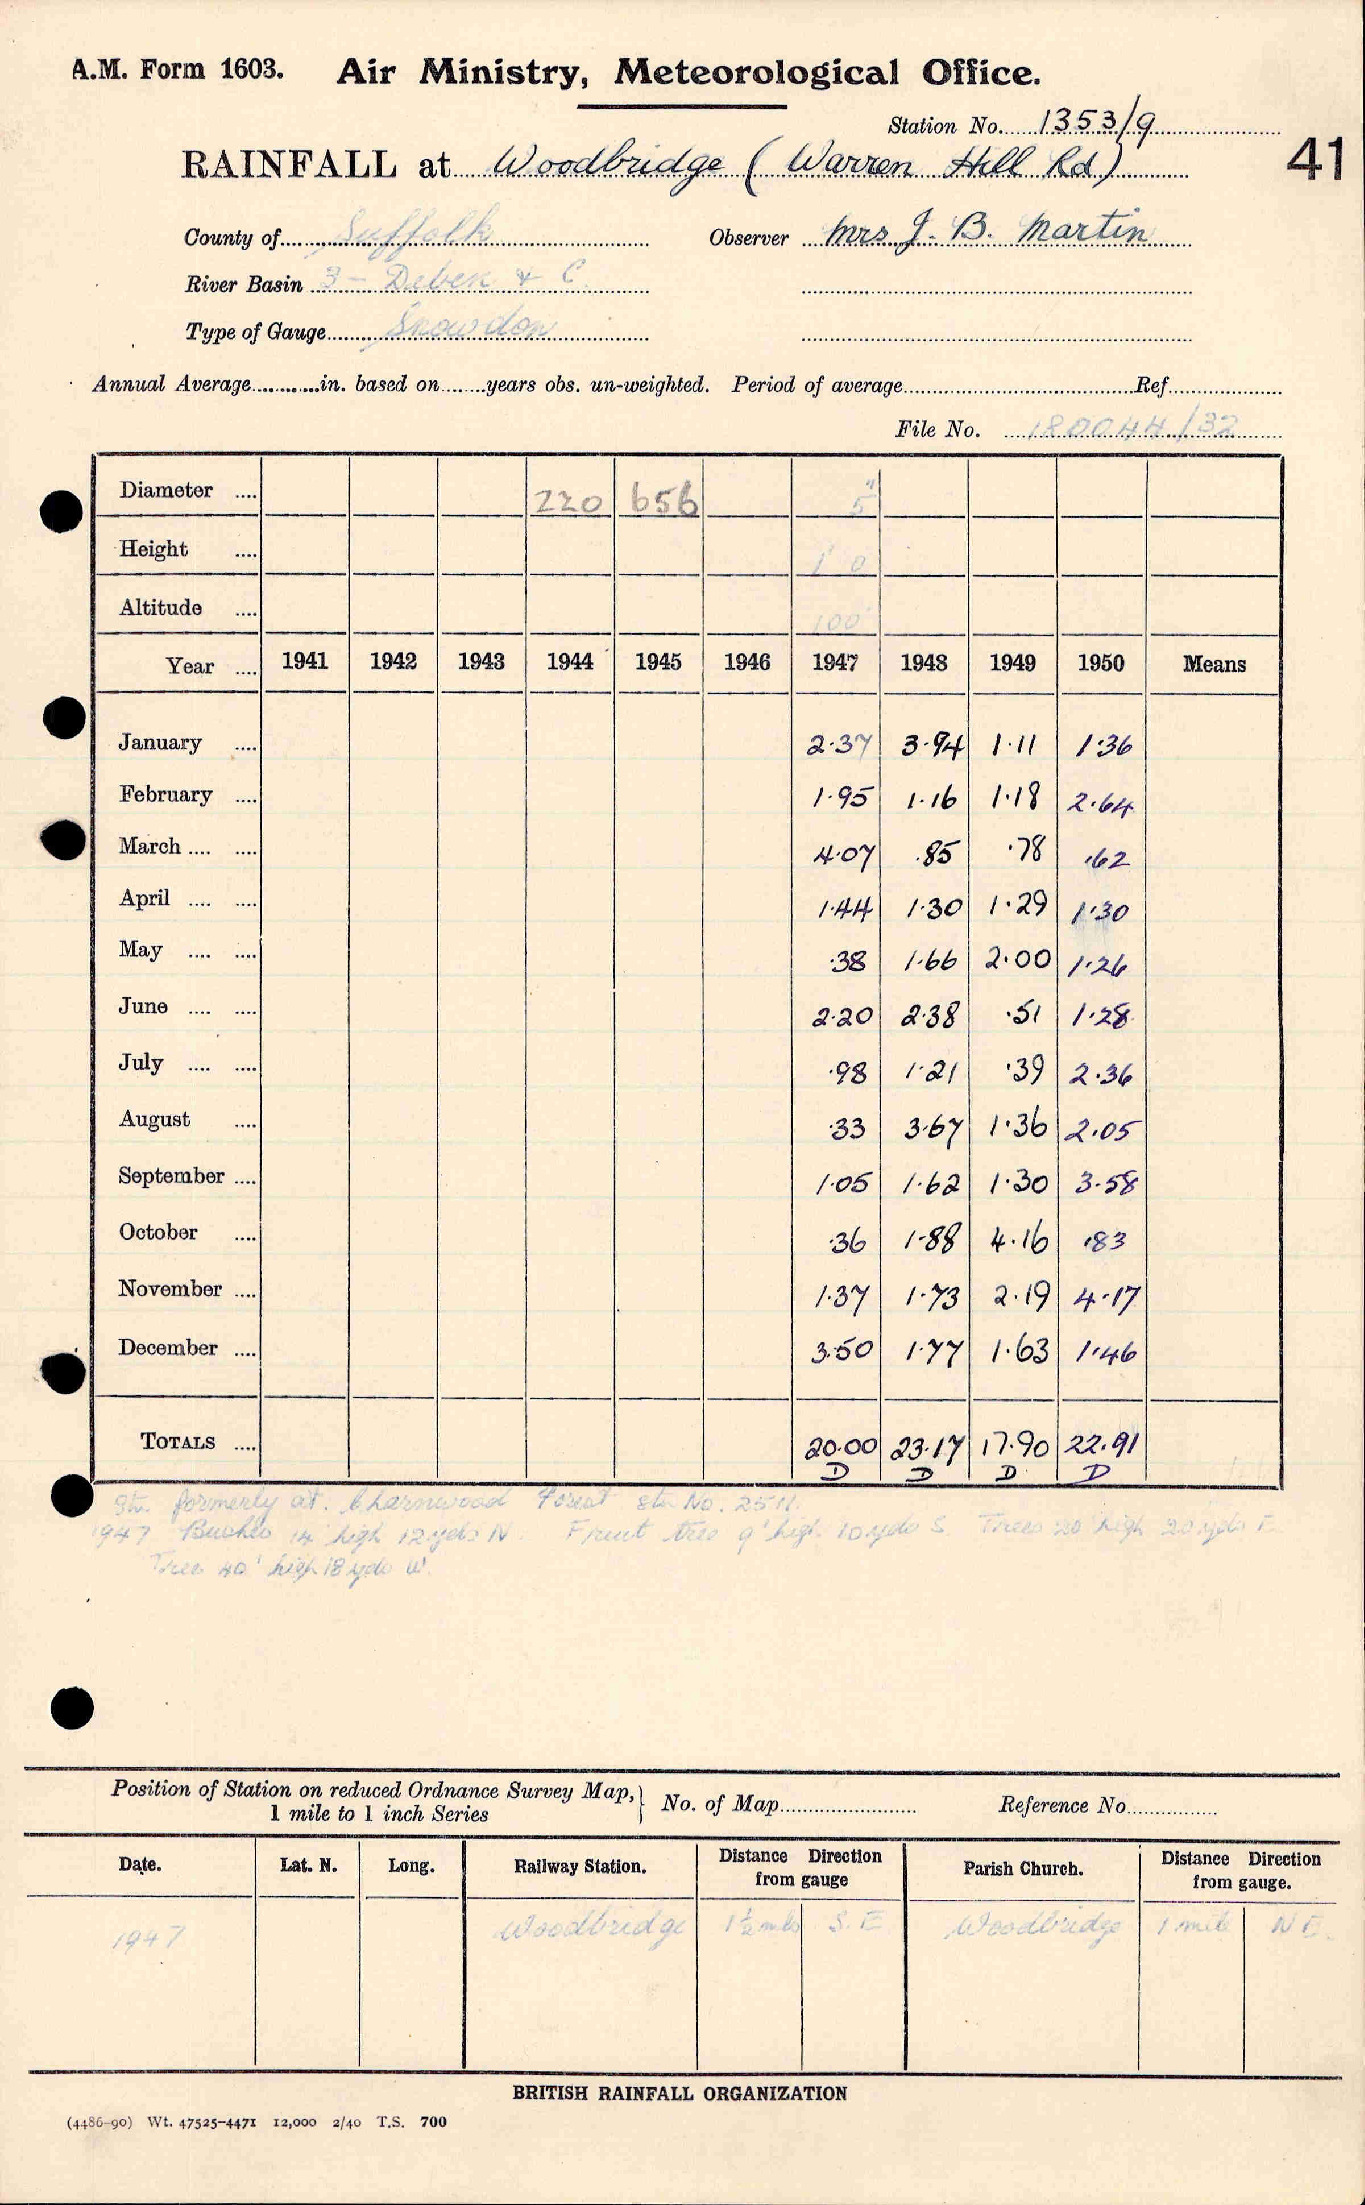 A.M. Form 1603. Air Ministry, Meteorological Office.
Station No. 1353/9
RAINFALL at Woodbridge (Warren Hill Rd) 41
County of Suffolk Observer Mrs J. B. Martin
River Basin 3 - Deben & C.
Type of Gauge Snowdon
Annual Average............in. based on.......years obs. un-weighted. Period of average........Ref........
File No. 180044/32
Diameter .... 220 656 5"
Height .... 1' 0
Altitude .... 100'
Year .... 1941 1942 1943 1944 1945 1946 1947 1948 1949 1950 Means
January .... 2·37 3·94 1·11 1·36
February .... 1·95 1·16 1·18 2·64
March .... .... 4·07 ·85 ·78 ·62
April .... .... 1·44 1·30 1·29 1·30
May .... .... ·38 1·66 2·00 1·26
June .... .... 2·20 2·38 ·51 1·28
July .... .... ·98 1·21 ·39 2·36
August .... ·33 3·67 1·36 2·05
September .... 1·05 1·62 1·30 3·58
October .... ·36 1·88 4·16 ·83
November .... 1·37 1·73 2·19 4·17
December .... 3·50 1·77 1·63 1·46
TOTALS .... 20·00 23·17 17·90 22·91
D D D D
Stn. formerly at. Charnwood Forest Stn No. 2511.
1947 Bushes 14' high 12 yds N. Fruit tree 9' high 10 yds S Trees 20' high 20 yds E
Tree 40' high 18 yds W.
Position of Station on reduced Ordnance Survey Map,
1 mile to 1 inch Series } No. of Map........ Reference No........
Date. Lat. N. Long. Railway Station. Distance Direction from gauge Parish Church. Distance Direction from gauge.
1947 Woodbridge 1½ mls S.E Woodbridge 1 mile N E.
BRITISH RAINFALL ORGANIZATION
(4486-90) Wt. 47525-4471 12,000 2/40 T.S. 700